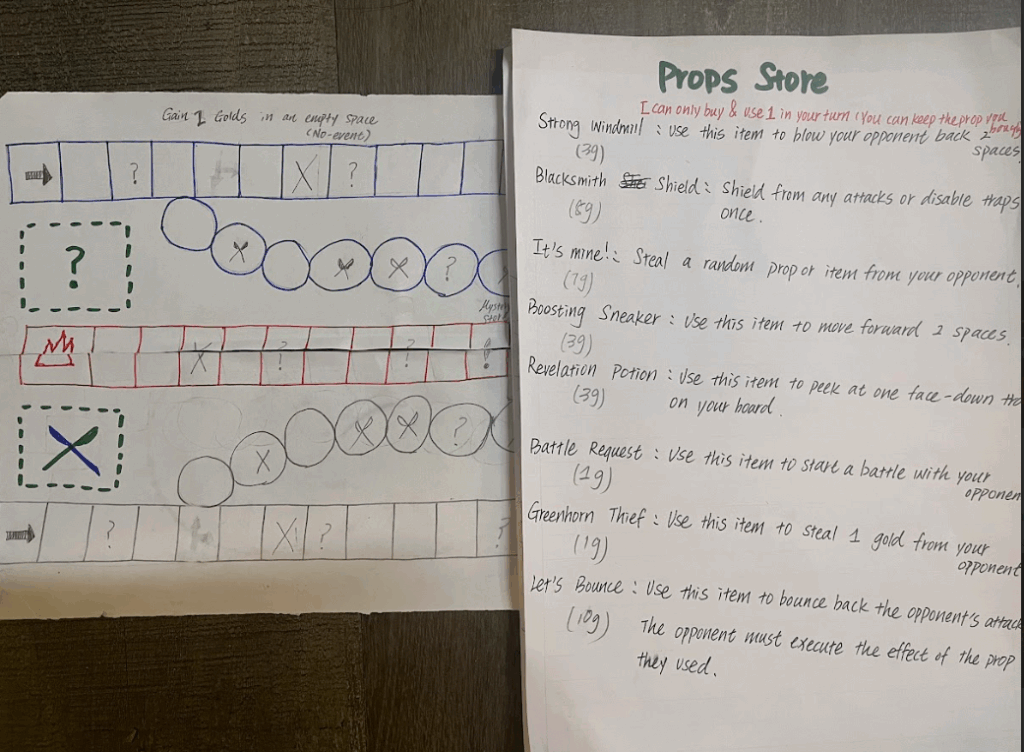 Gain 1 Golds in an empty space
(No-event)
?
X
?
X
X
X
?
?
Mystery
Store
X
?
?
!
X
X
X
X
?
?
X
?
?
Props Store
I can only buy & use 1 in your turn (You can keep the prop you
bought
Strong Windmill : Use this item to blow your opponent back 2
(3g)
spaces
Blacksmith Shield : Shield from any attacks or disable traps
(8g)
once.
It's mine! : Steal a random prop or item from your opponent.
(7g)
Boosting Sneaker : Use this item to move forward 2 spaces.
(3g)
Revelation Potion : Use this item to peek at one face-down
(3g)
on your board.
Battle Request : Use this item to start a battle with your
(1g)
opponen
Greenhorn Thief : Use this item to steal 1 gold from your
(1g)
opponent
Let's Bounce : Use this item to bounce back the opponent's attack
(10g)
The opponent must execute the effect of the prop
they used.